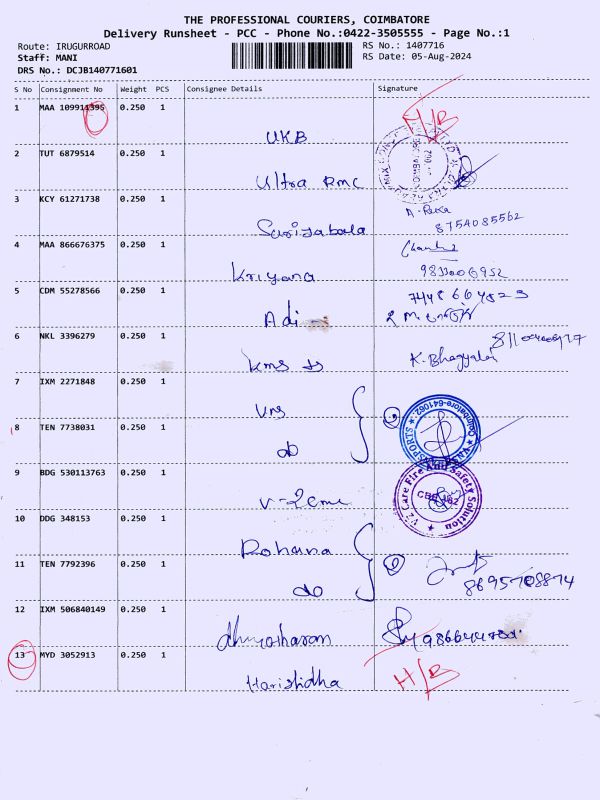 THE PROFESSIONAL COURIERS, COIMBATORE
Delivery Runsheet - PCC - Phone No.:0422-3505555 - Page No.:1
Route: IRUGURROAD RS No.: 1407716
Staff: MANI RS Date: 05-Aug-2024
DRS No.: DCJB140771601
S No Consignment No Weight PCS Consignee Details Signature
1 MAA 109911395 0.250 1 UKB H/B
2 TUT 6879514 0.250 1 Ultra RMC
3 KCY 61271738 0.250 1 Suriyabala 8754085562
4 MAA 866676375 0.250 1 Kriyana
5 CDM 55278566 0.250 1 Adi
6 NKL 3396279 0.250 1 kms K. Bhagyalaxmi
7 IXM 2271848 0.250 1 Vns
8 TEN 7738031 0.250 1 do
Coimbatore-641062
9 BDG 530113763 0.250 1
V2 Care Fire And Safety Solution
10 DDG 348153 0.250 1 Rohana
11 TEN 7792396 0.250 1 do 8695708874
12 IXM 506840149 0.250 1
13 MYD 3052913 0.250 1 Harishidha H/B